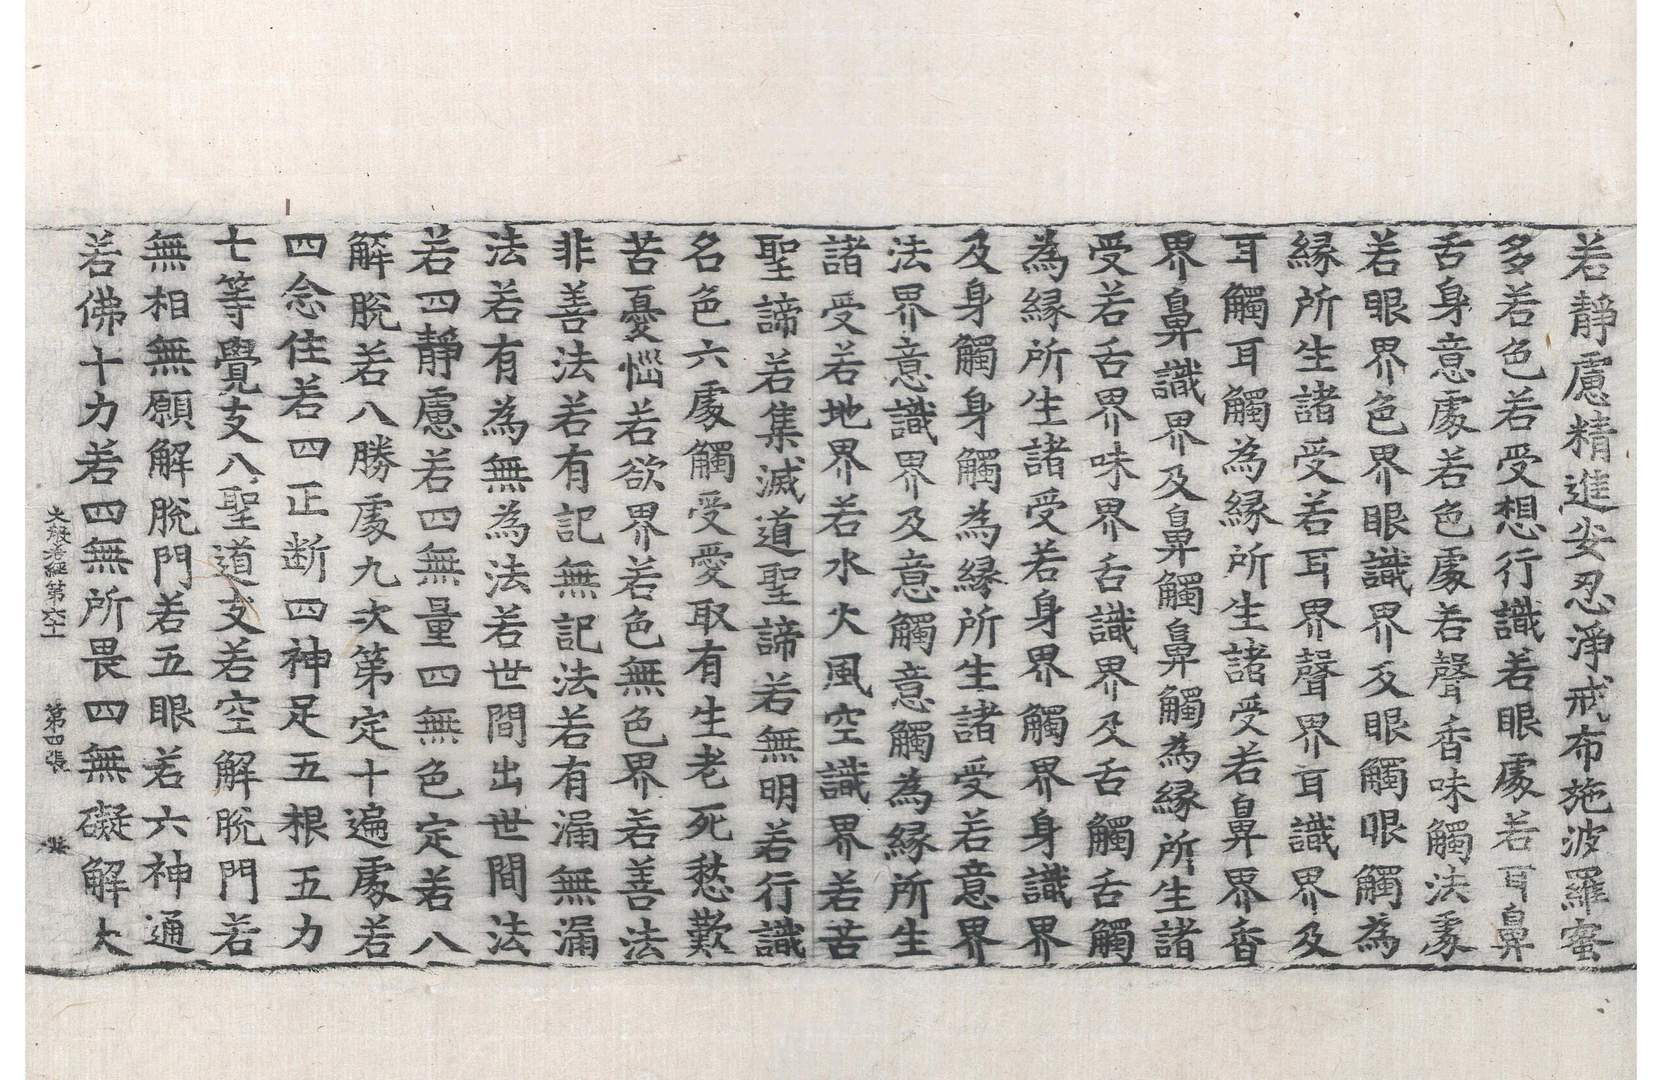 若靜慮精進安忍淨戒布施波羅蜜
多若色若受想行識若眼處若耳鼻
舌身意處若色處若聲香味觸法處
若眼界色界眼識界及眼觸眼觸為
緣所生諸受若耳界聲界耳識界及
耳觸耳觸為緣所生諸受若鼻界香
界鼻識界及鼻觸鼻觸為緣所生諸
受若舌界味界舌識界及舌觸舌觸
為緣所生諸受若身界觸界身識界
及身觸身觸為緣所生諸受若意界
法界意識界及意觸意觸為緣所生
諸受若地界若水火風空識界若苦
聖諦若集滅道聖諦若無明若行識
名色六處觸受愛取有生老死愁歎
苦憂惱若欲界若色無色界若善法
非善法若有記無記法若有漏無漏
法若有為無為法若世間出世間法
若四靜慮若四無量四無色定若八
解脫若八勝處九次第定十遍處若
四念住若四正断四神足五根五力
七等覺支八聖道支若空解脫門若
無相無願解脫門若五眼若六神通
若佛十力若四無所畏四無礙解大
大般若經第六十 第四張